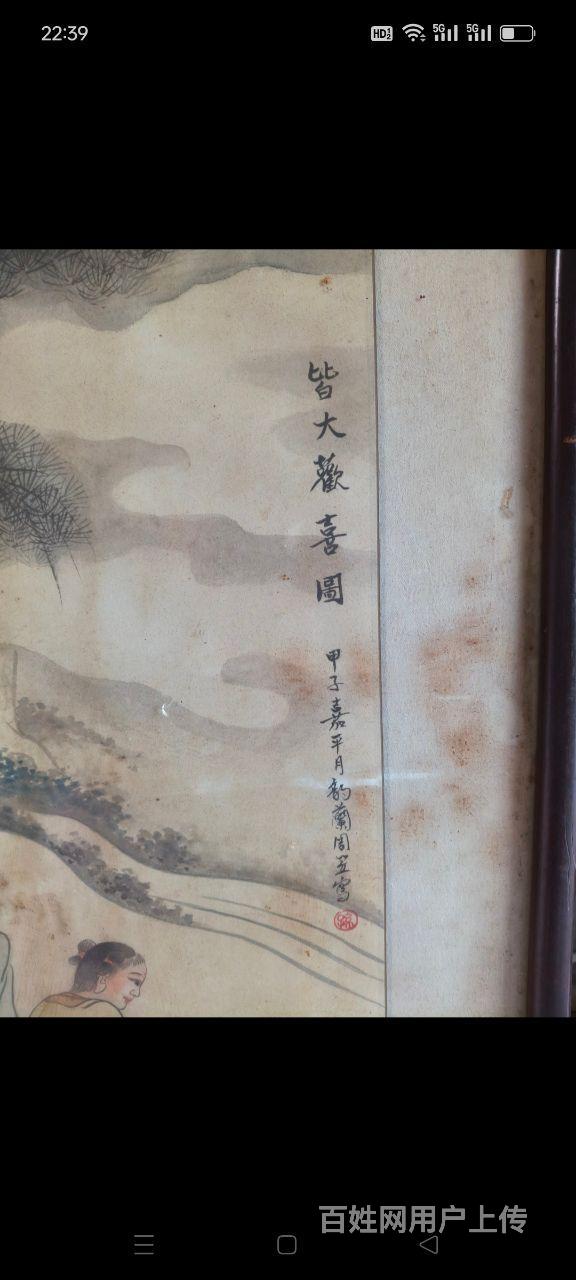 22:39
HD
5G
5G
皆大歡喜圖
甲子嘉平月韵蘭周笠寫
百姓网用户上传